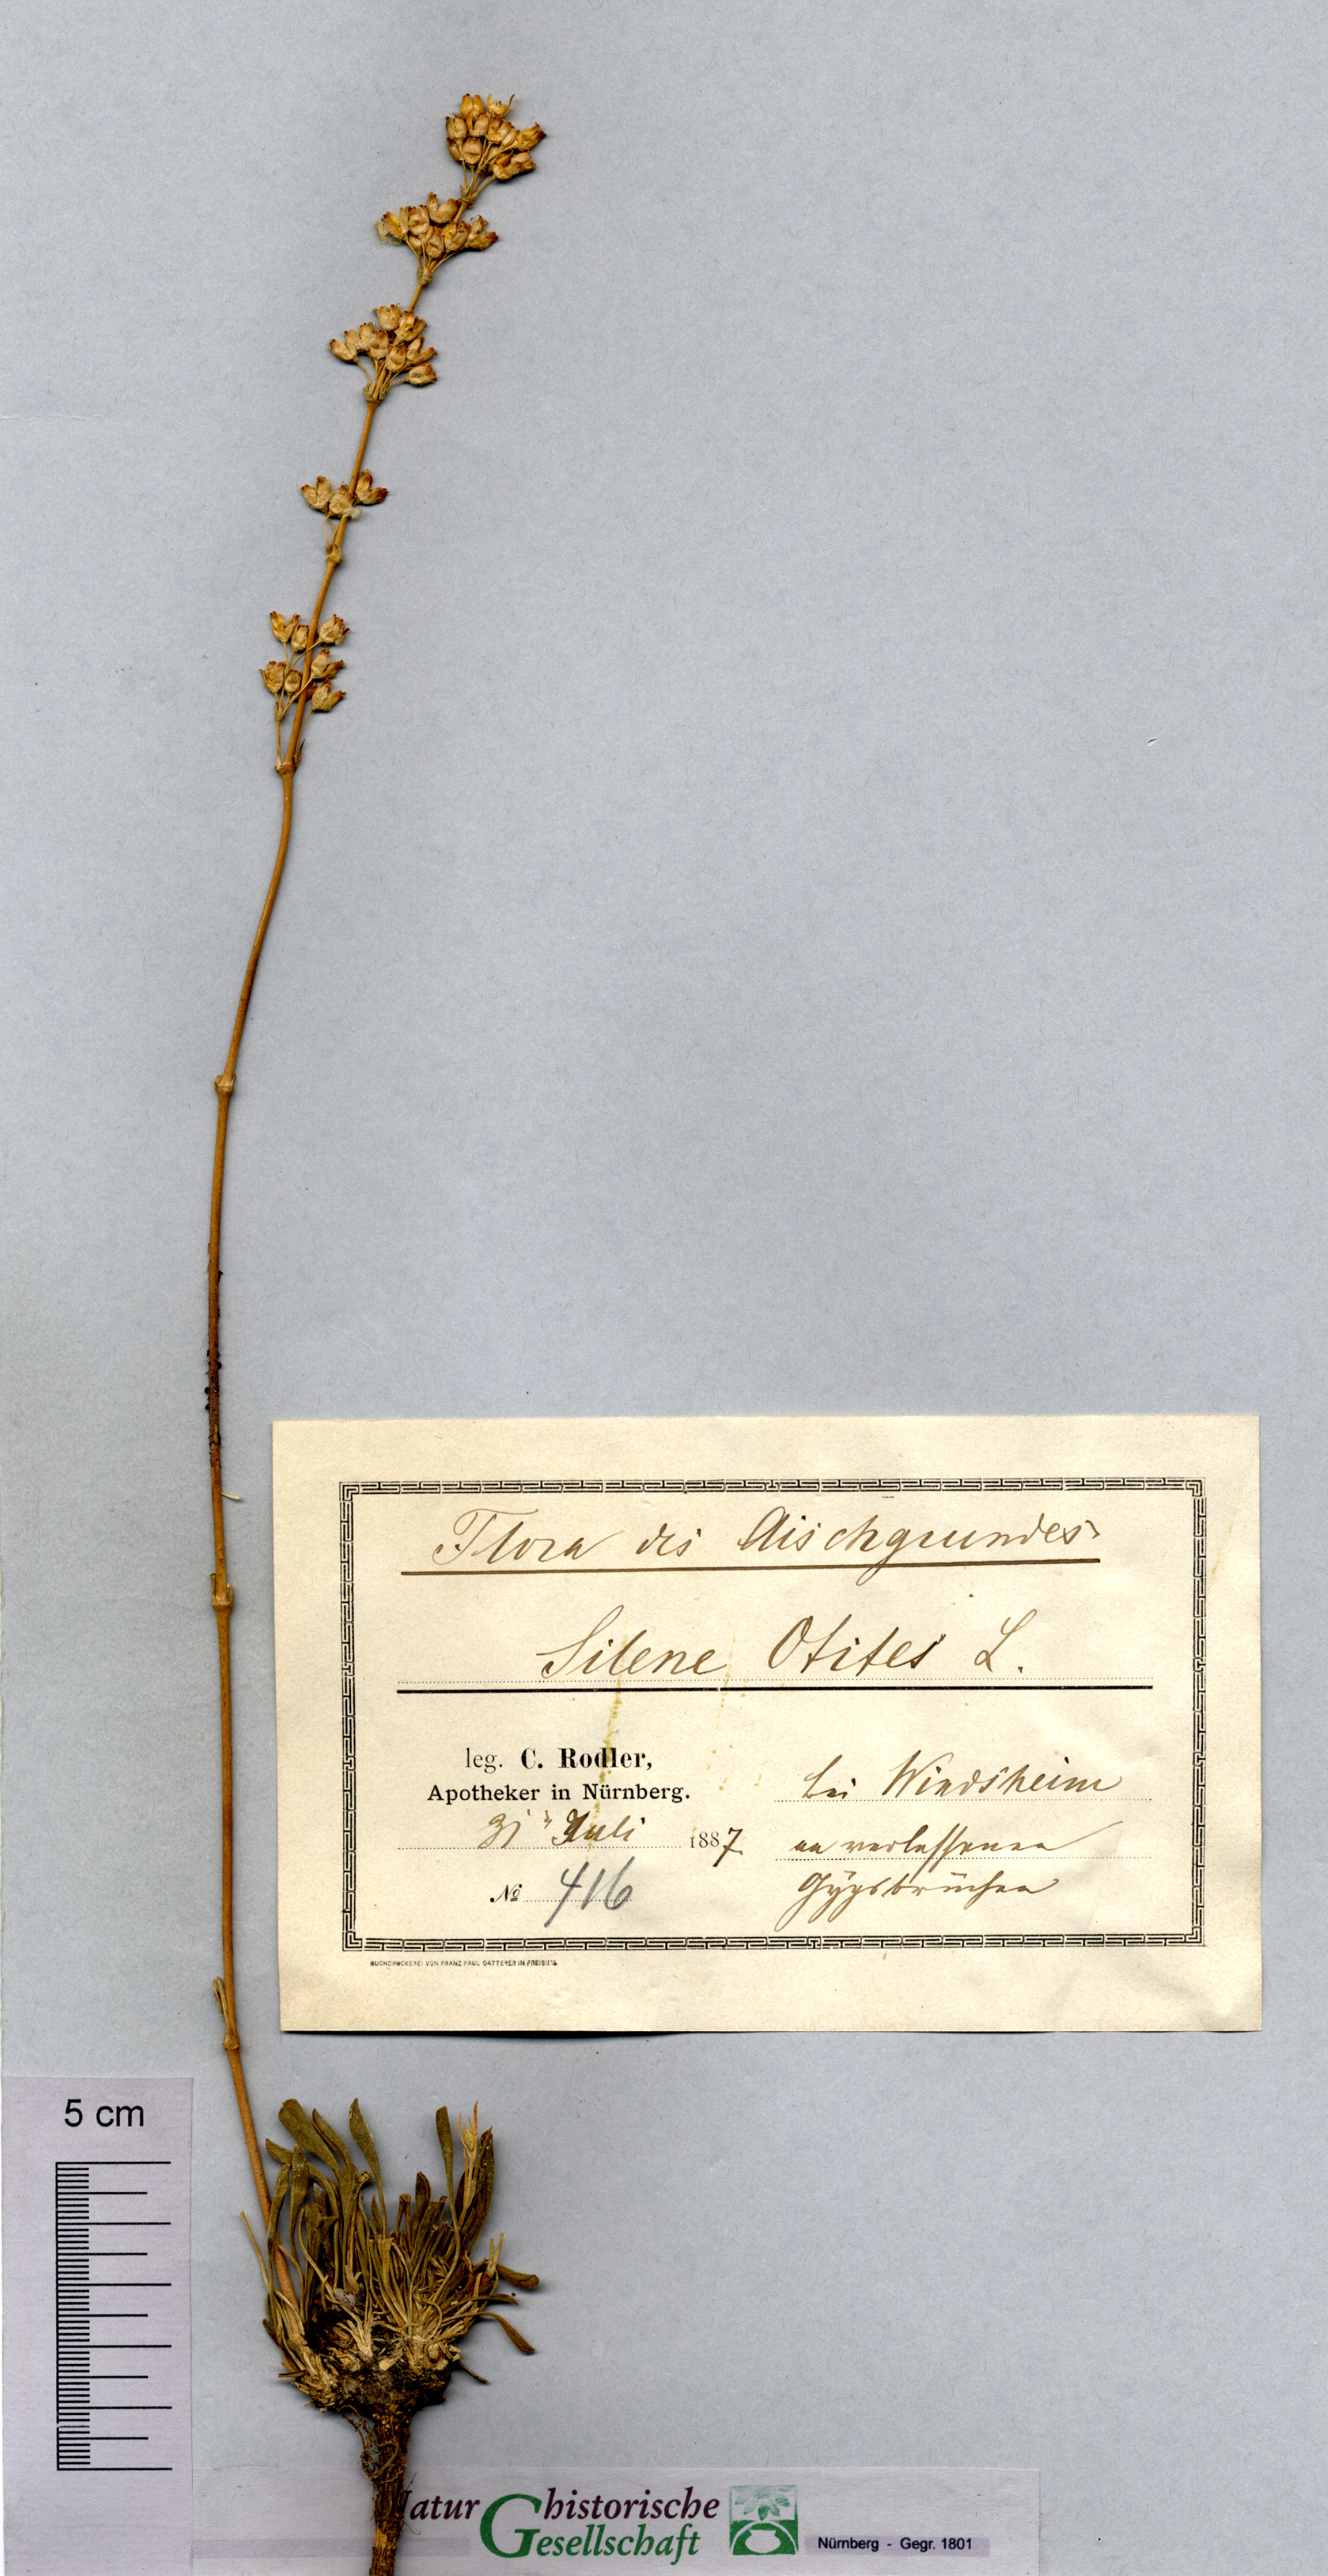 Flora des Aischgrundes
Silene Otites L.
leg. C. Rodler,
Apotheker in Nürnberg.
31 Juli 1887.
№ 416
bei Windsheim
an verlassenen
Gÿpsbrüchen
BUCHDRUCKEREI VON FRANZ PAUL DATTERER IN FREISING.
5 cm
Naturhistorische
Gesellschaft
Nürnberg - Gegr. 1801